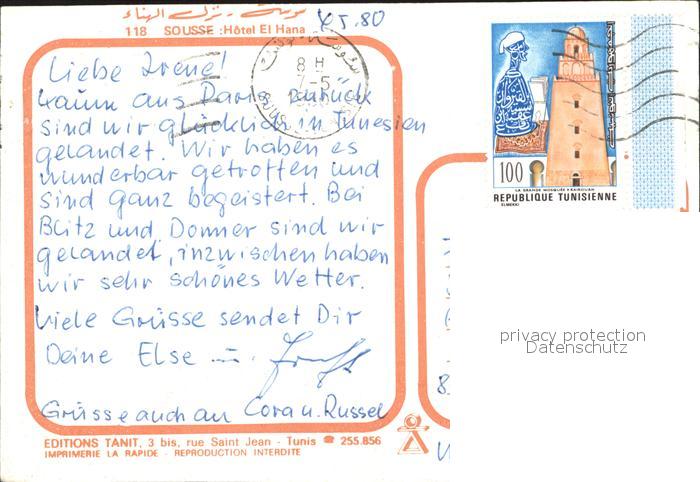 سوسة - نزل الهناء
118 SOUSSE : Hôtel El Hana
4.5.80
8 H
7-5
100
LA GRANDE MOSQUÉE KAIROUAN
REPUBLIQUE TUNISIENNE
ELMEKKI
Liebe Irene!
Kaum aus Paris zurück
sind wir glücklich in Tunesien
gelandet. Wir haben es
wunderbar getroffen und
sind ganz begeistert. Bei
Blitz und Donner sind wir
gelandet, inzwischen haben
wir sehr schönes Wetter.
Viele Grüsse sendet Dir
Deine Else u.
Grüsse auch an Cora u. Russel
privacy protection
Datenschutz
EDITIONS TANIT, 3 bis, rue Saint Jean - Tunis ☎ 255.856
IMPRIMERIE LA RAPIDE - REPRODUCTION INTERDITE